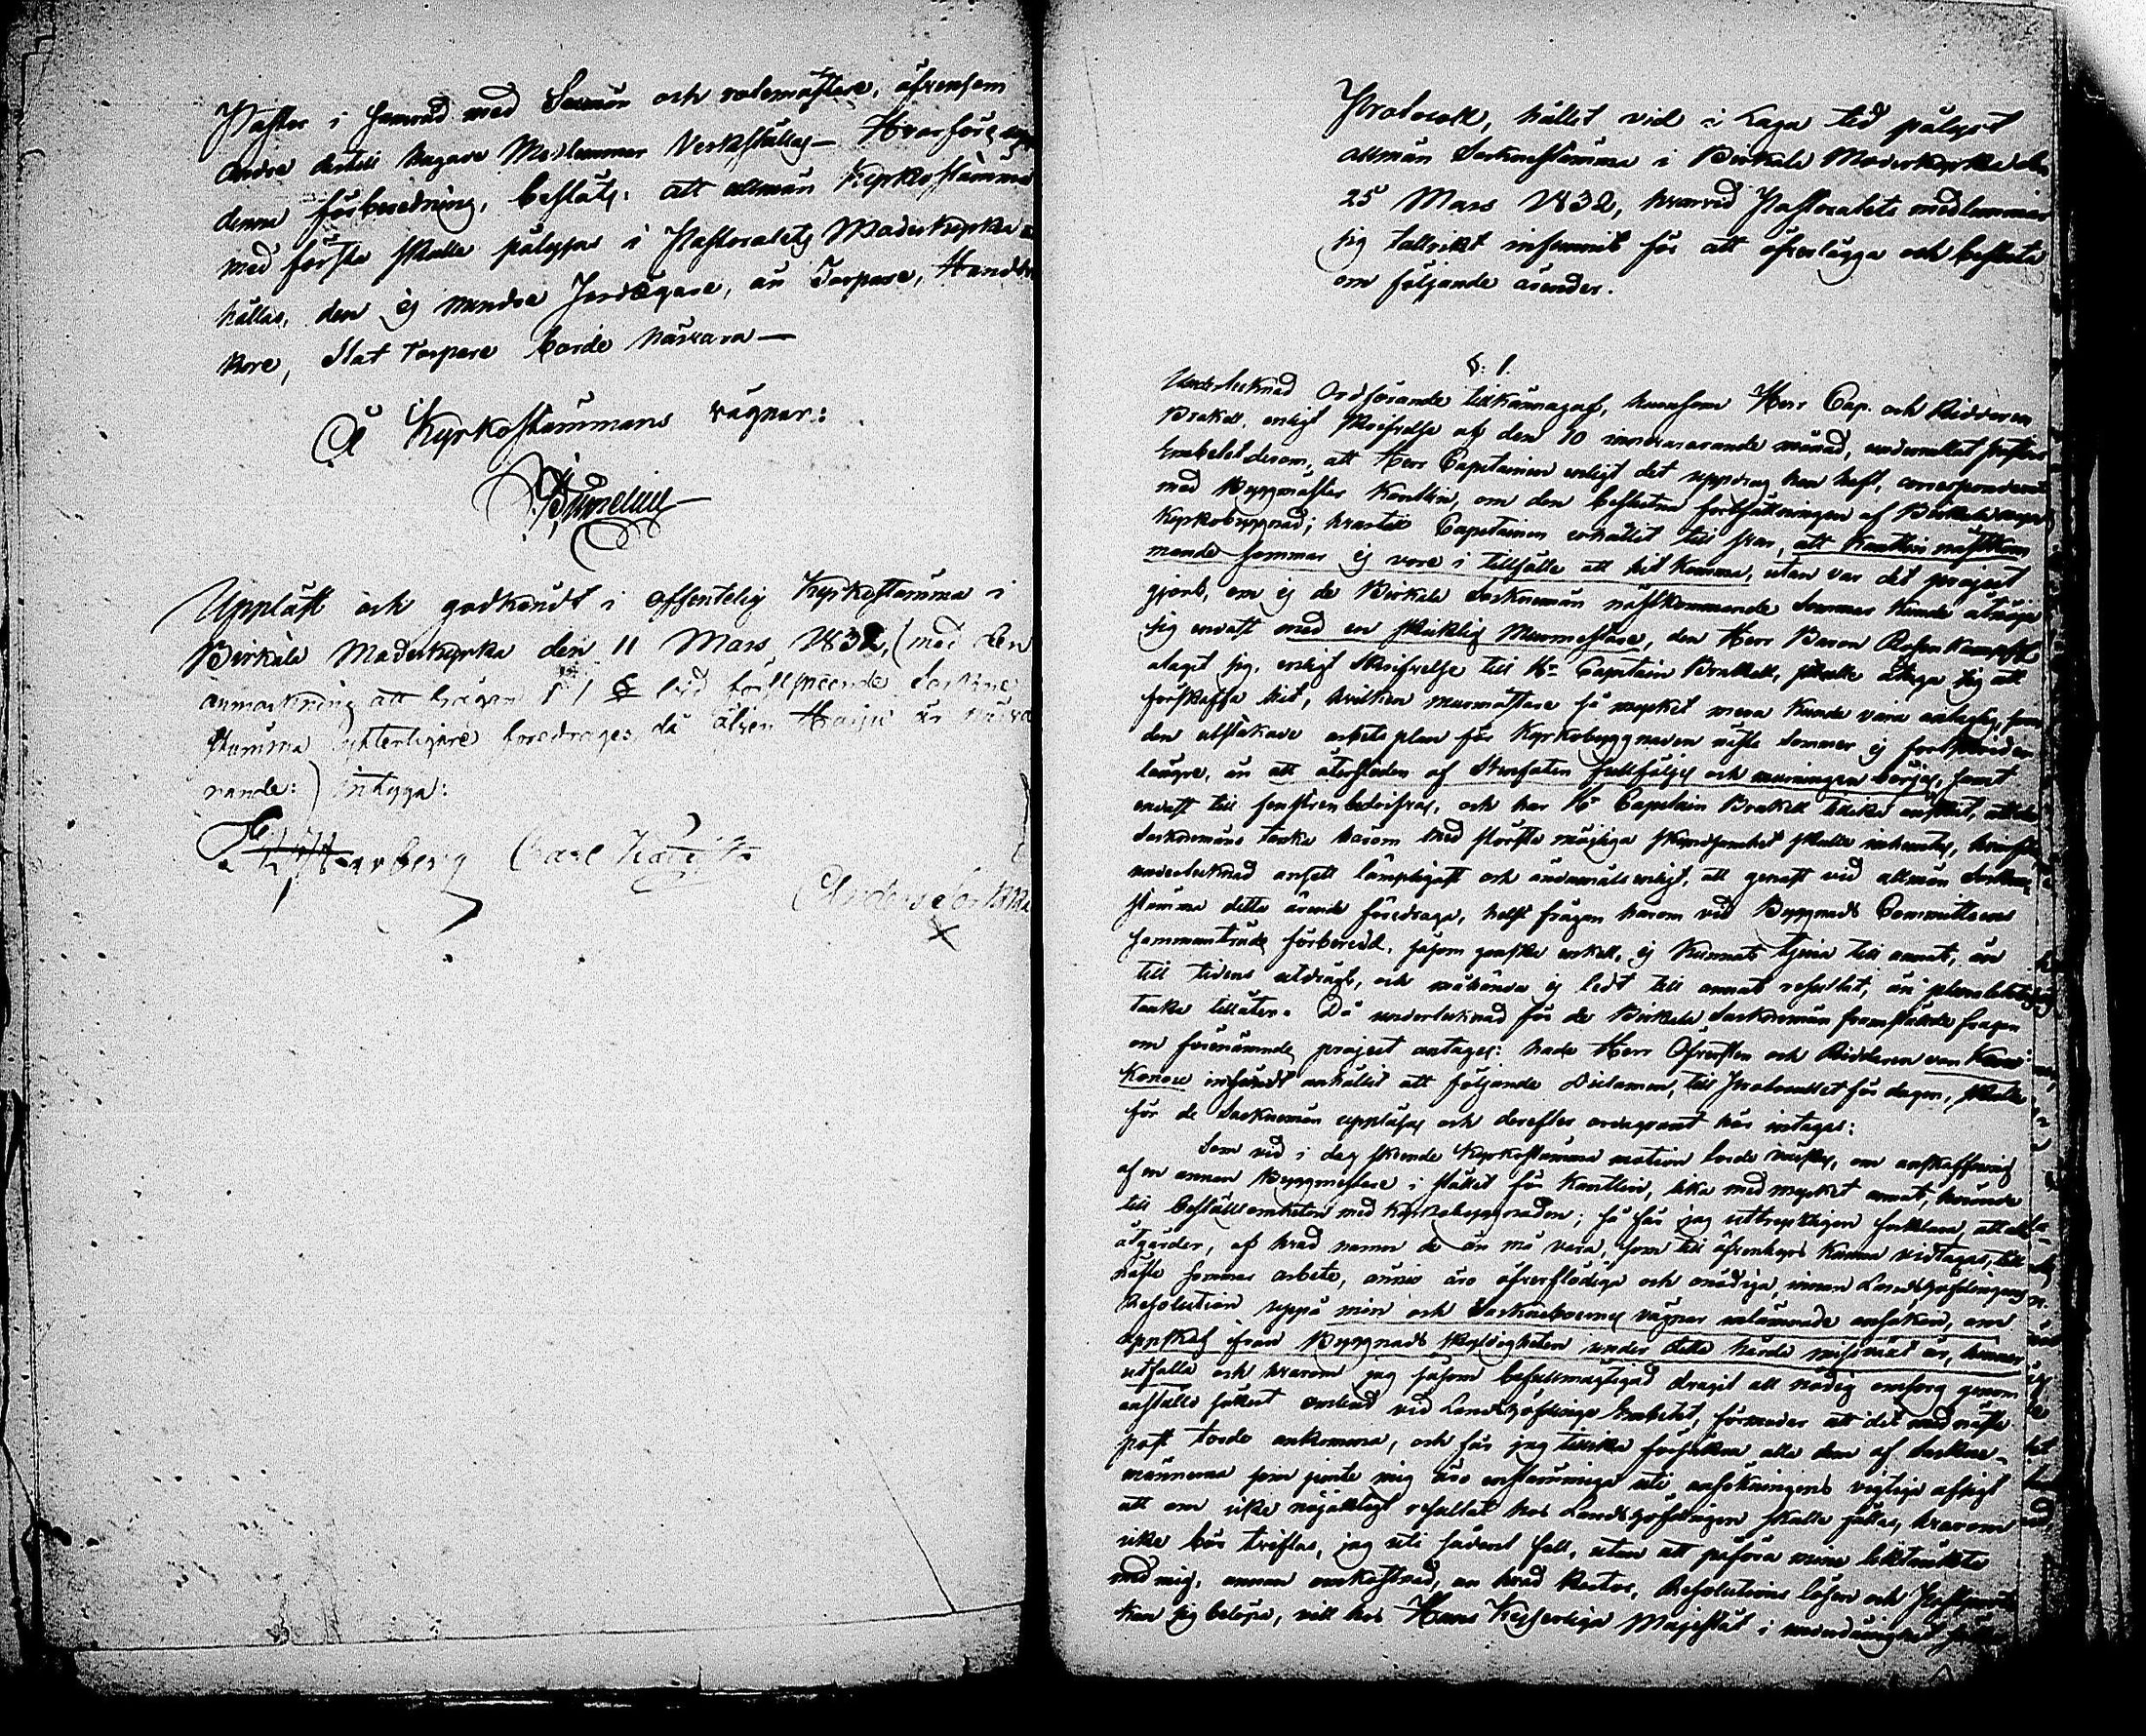 Pastor i samråd med Sexmän och rolemästare, äfvensom
andra dertill hugade Medlemmar Verkställas — Hvarföre
denna förberedning, beslöts: att allmän Kyrkostämma
med första skulle pålysas i Pastoratets Moderkyrka
hållas, den ej mindre Jordägare, än Torpare, Handtver
kare, Stat Torpare borde närvara —
På Kyrkostämmans vägnar:
Uppläst och godkändt i offentelig Kyrkostämma i
Birkala Moderkyrka den 11 Mars 1832, (med den
anmärkning att frågan i 1 § vid förestående Sockne
stämma ytterligare föredrages, då äfven Harju är närva
rande:) intyga:
Carl
Anders
X
Protocoll, hållet vid i Laga tid pålyst
allmän Sockenstämma i Birkala Moderkyrka den
25 Mars 1832, hvarvid Pastoratets medlemmar
sig talrikt infunnit för att öfverlägga och besluta
om följande ärender.
§: 1.
Undertecknad Ordförande tillkännagaf, hurusom Herr Cap. och Riddaren
Brakell, enligt skrifvelse af den 10 innevarande månad, underrättat Pastors
Embetet derom, att Herr Capitainen enligt det uppdrag han haft, corresponderat
med Byggmästar Kantlin, om den beslutna fortsättningen af Birkala nya
Kyrkobyggnad; hvartill Capitainen erhållit till svar, att Kantlin nästkom
mande sommar ej vore i tillfälle att hit komma, utan var det project
gjort, om ej de Birkala Socknemän nästkommande Sommar kunde åtnöja
sig endast med en skicklig Murmestare, den Herr Baron Rosenkampff
ålagt sig, enligt skrifvelse till Hr Capitain Brakell, skulle åtaga sig att
förskaffa hit, hvilken murmästare så mycket mera kunde vara antaglig, som
den utstakade arbets plan för Kyrkobyggnaden nästa sommar ej fortskrider
längre, än att återstoden af Stenfoten fullföljes och murningen börjas, samt
endast till fenstren bedrifvas, och har Hr Capitain Brakell tillika önskat, att de
Sockenmäns tanke härom med största möjliga skyndsamhet skulle inhemtas, hvarföre
undertecknad ansett lämpligast och ändamålsenligt, att genast vid allmän Socken
stämma detta ärende föredraga, helst frågan härom vid Byggnads Committéens
sammanträde förberedd, såsom ganska enkell, ej kunnat tjena till annat, än
till tidens utdrägt, och måhända ej ledt till annat resultat, än pluralitetens
tanke tillåter. Då undertecknad för de Birkala Socknemän framställde frågan
om förenämnde project antages: hade Herr Öfversten och Riddaren von Kæmo
Konow infunnit anhållit att följande Dictamen, till Protocollet för dagen, skulle
för de Socknemän uppläsas och derefter ordagrant här intagas:
Som vid i dag skeende Kyrkostämma motion torde väckas, om anskaffning
af en annan Byggmestare i stället för Kantlin, lika med mycket annat, hörande
till beställsamheten med Kyrkobyggnaden; så får jag uttryckligen förklara, att alla
åtgärder, af hvad namn de än må vara, som till äfventyrs kunna vidtagas, till
nästa sommar arbete, ännu äro öfverflödiga och onödiga, innan Landshöfdingens
Resolution uppå min och Socknebornes vägnar inlämnade ansökan, om
uppskof ifrån Byggnads skyldigheten under detta hårda missväxt år, hinner
utfalla och hvarom jag såsom befullmägtigad dragit all nödig omsorg genom
anställd säkert ombud vid Landshöfdinge Embetet, förmodar att det med nästa
post torde ankomma, och får jag tillika försäkra alla dem af Sockne-
männerna som jemte mig äro enstämmige uti ansökningens vigtiga afsigt
att om icke nöjaktigt resultat hos Landshöfdingen skulle fällas, hvarom
icke bör tviflas, jag uti sådant fall, utan att påföra mine liktänkte
med mig, annan omkostnad, än hvad Chartæ, Resolutions lösen och Postporto
kan sig belöpa, vill hos Hans Kejserliga Majestät i underdånighet